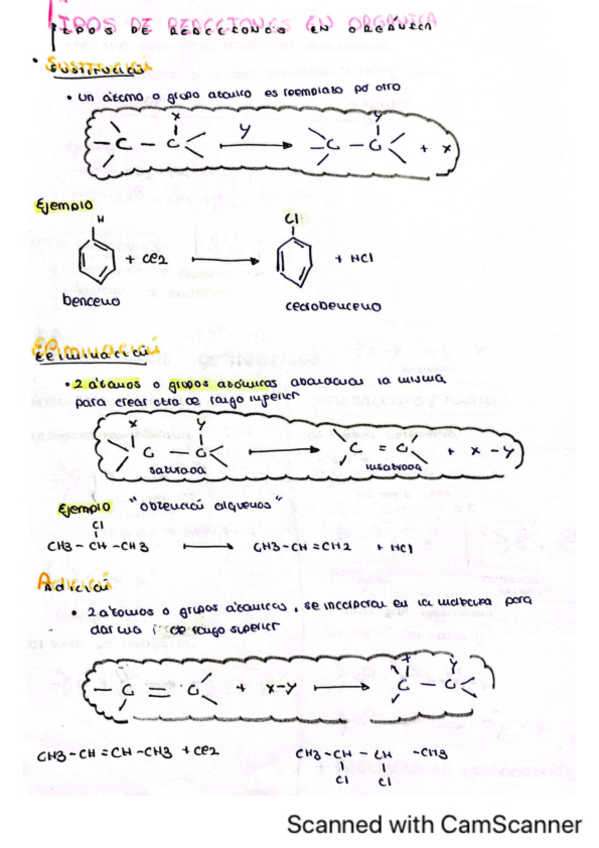 TIPOS DE REACCIONES EN ORGÁNICA
SUSTITUCIÓN
• un átomo o grupo atómico es reemplazado por otro
X Y
– C – C → – C – C + X
Y
Ejemplo
H Cl
+ Cl2 → + HCl
benceno clorobenceno
Eliminación
• 2 átomos o grupos atómicos abandonan la misma
para crear otra de rango superior
X Y
C – C → C = C + X – Y
saturada insaturada
Ejemplo "obtención alquenos"
Cl
CH3 – CH – CH3 → CH3 – CH = CH2 + HCl
Adición
• 2 átomos o grupos atómicos, se incorporan en la molécula para
dar una de rango superior
X Y
– C = C + X – Y → C – C
CH3 – CH = CH – CH3 + Cl2 CH3 – CH – CH – CH3
Cl Cl
Scanned with CamScanner